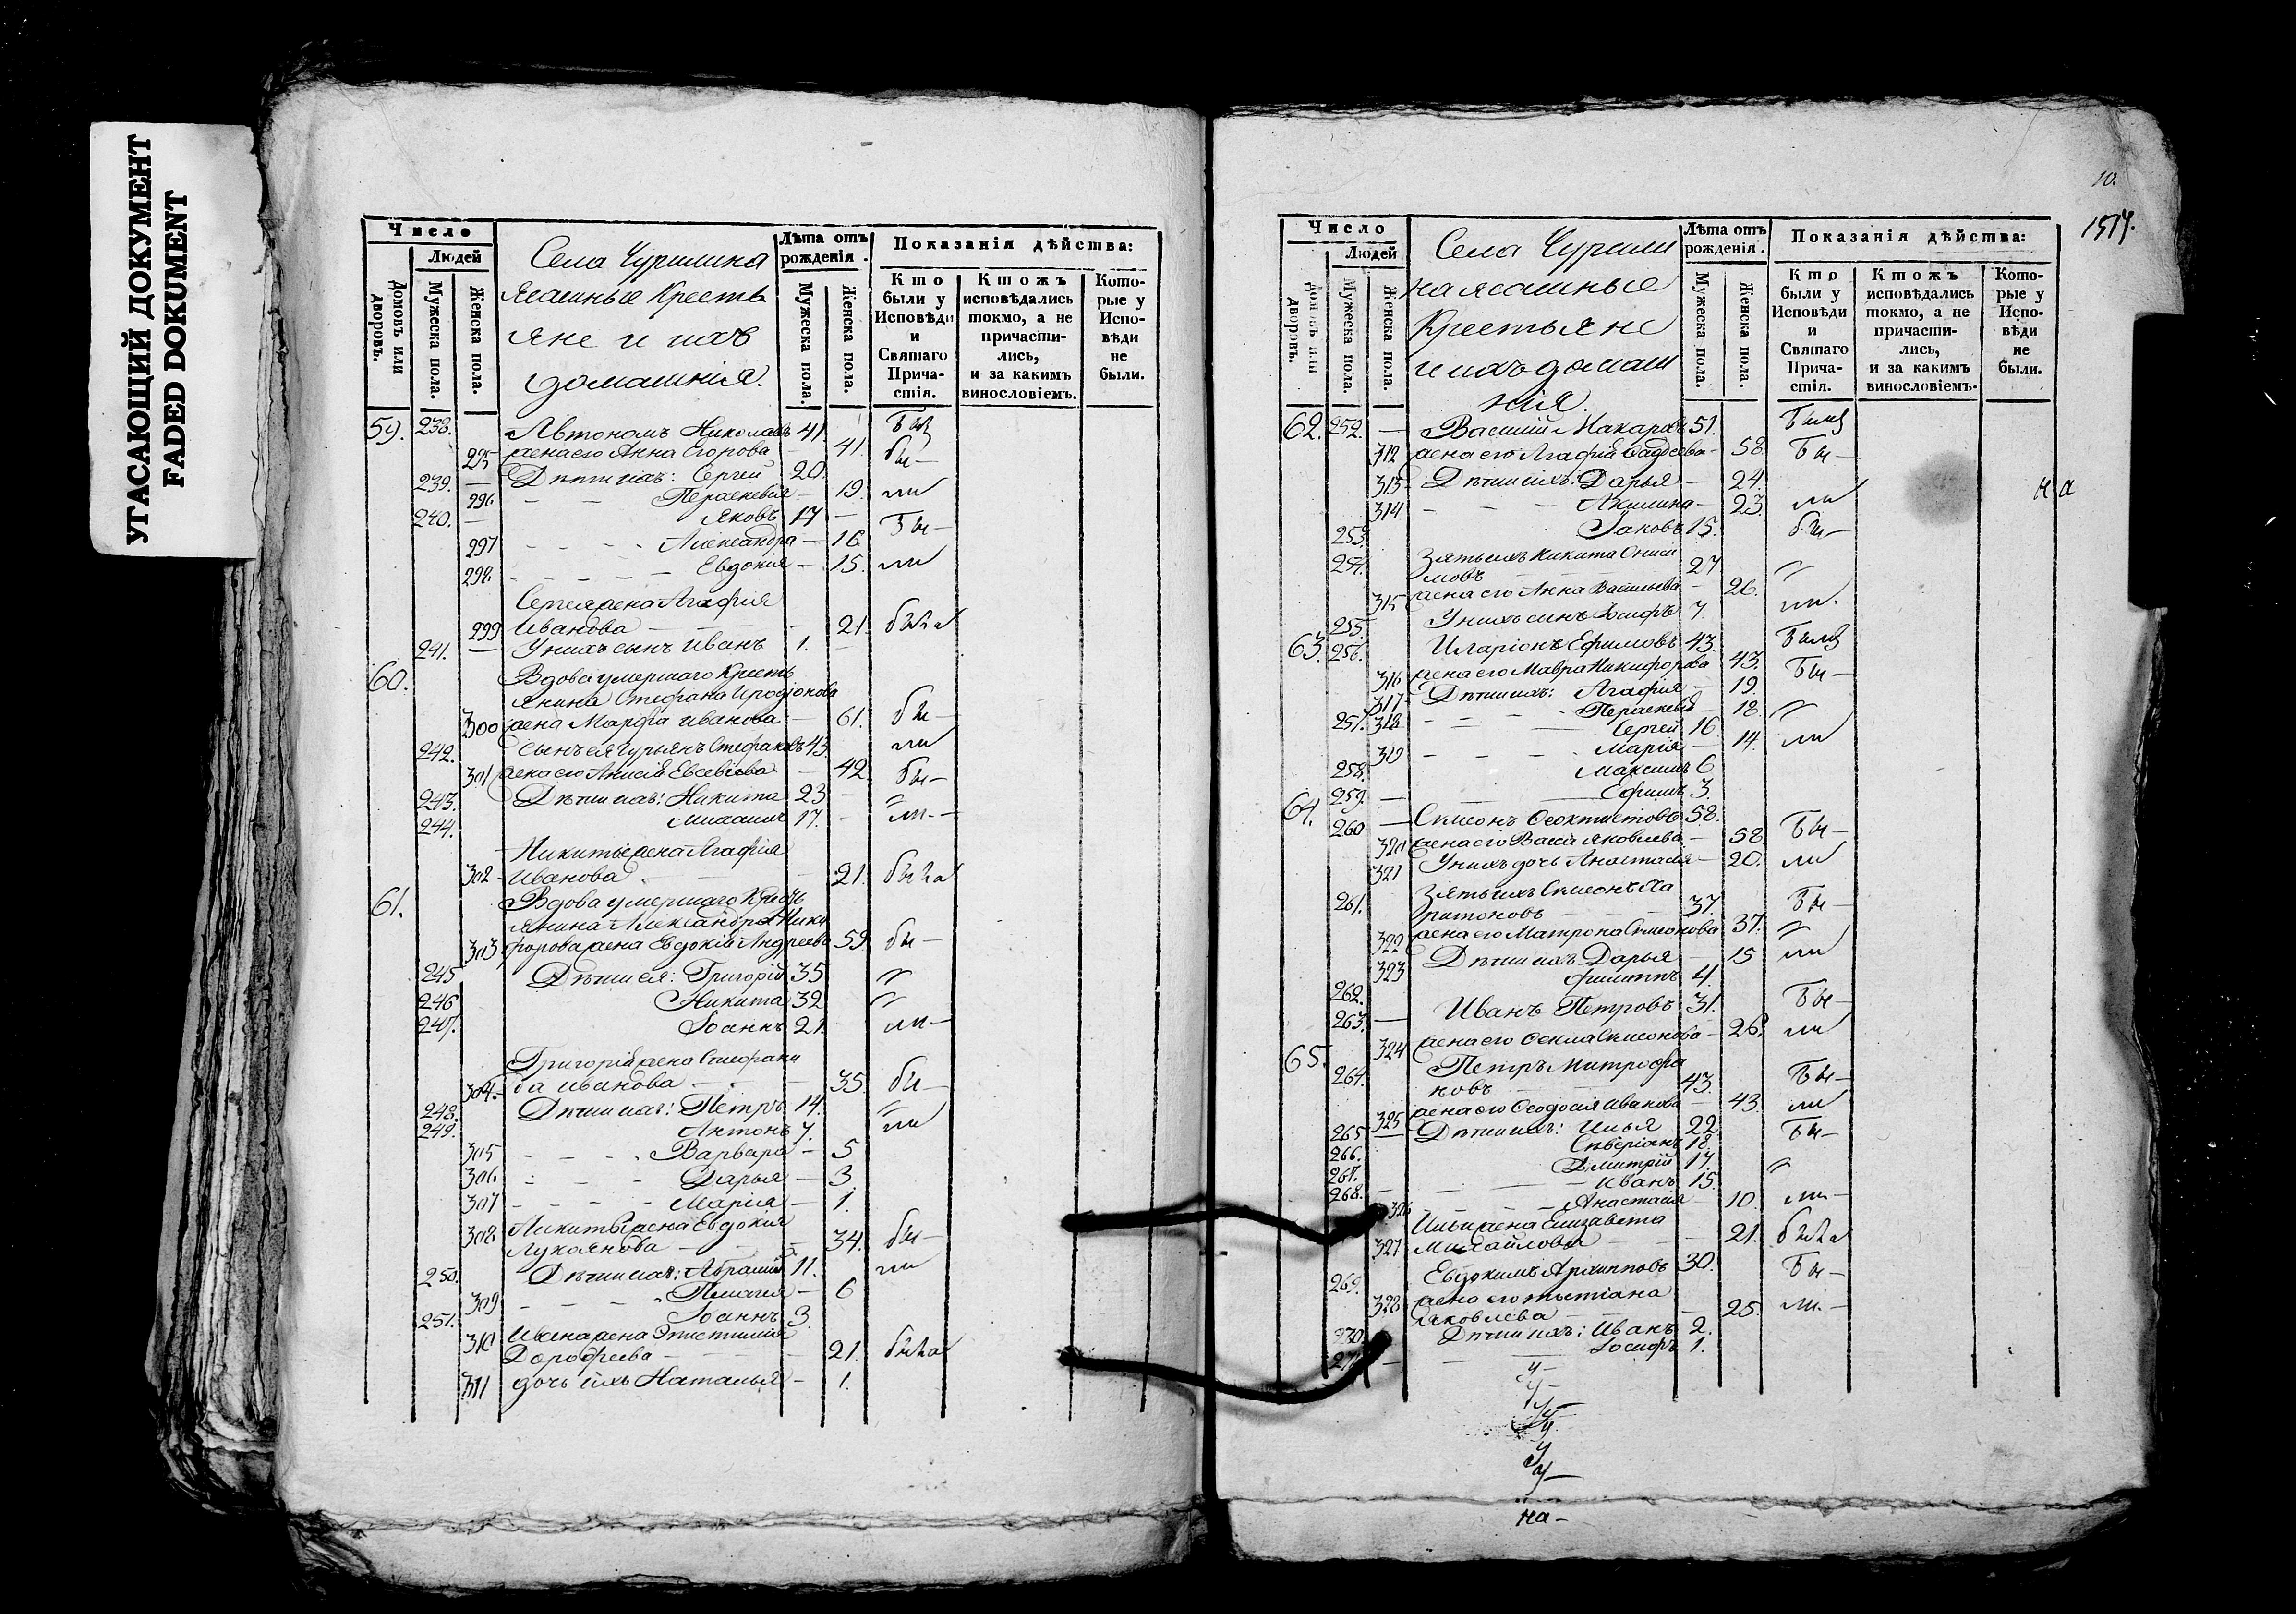 УГАСАЮЩИЙ ДОКУМЕНТ
FADED DOKUMENT
Число
Людей
Домовъ или дворовъ.
Мужеска пола.
Женска пола.
Села Чуршина
Ясашные Кресть
яне и ихъ
домашнія.
Лѣта отъ рожденія.
Мужеска пола.
Женска пола.
Показанія дѣйства:
Кто были у Исповѣди и Святаго Причастія.
Ктожъ исповѣдались токмо, а не причастились, и за какимъ винословіемъ.
Которые у Исповѣди не были.
59. 238. Автономъ Николаевъ 41
295 жена его Анна Егорова 41. бы-
239. Дѣти ихъ: Сергей 20.
296 Параскевія 19. ли
240. Яковъ 17 Бы-
297 Александра 16
298. Евдокия 15. ли
Сергея жена Агафия
299 Иванова 21. была
241. У нихъ сынъ Иванъ 1.
60. Вдова умершаго Кресть
янина Стефана Иродіонова
300 жена Марфа Иванова 61. бы-
242. Сынъ ея Гурьянъ Стефановъ 43. ли
301 жена его Анисія Евсевіева 42. бы-
243. Дѣти ихъ: Никита 23
244. Михаилъ 17. ли-
Никиты жена Агафія
302 Иванова 21. была
61. Вдова умершаго Кресть
янина Александра Ники
303 форова жена Евдокія Андреева 59 бы-
245 Дѣти ея: Григорій 35
246 Никита 32
247. Іоаннъ 21 ли-
Григорія жена Стефани
304. да Иванова 35 бы-
248. Дѣти ихъ: Петръ 14.
249. Антонъ 7. ли
305 Варвара 5
306. Дарья 3
307 Марія 1.
308 Никиты жена Евдокия
Лукоянова 34. бы-
250. Дѣти ихъ: Абрамій 11. ли
309 Пелагея 6
251. Іоаннъ 3.
310 Ивана жена Эпистимія
Дорофеева 21. была
311 дочь ихъ Наталья 1.
10.
1517.
Число
Людей
Домовъ или дворовъ.
Мужеска пола.
Женска пола.
Села Чурши
на ясашные
Крестьяне
и ихъ домаш
нія.
Лѣта отъ рожденія.
Мужеска пола.
Женска пола.
Показанія дѣйства:
Кто были у Исповѣди и Святаго Причастія.
Ктожъ исповѣдались токмо, а не причастились, и за какимъ винословіемъ.
Которые у Исповѣди не были.
62. 252. Василій Макаровъ 51.
312 жена его Агафія Фадѣева 58. Бы-
313 Дѣти ихъ: Дарья 24.
на
314 Акилина 23. ли
253. Іаковъ 15. бы-
254. Зять ихъ Никита Ониси
мовъ 27
315 жена его Анна Васильева 26. ли.
255. У нихъ сынъ Іосифъ 7.
63. 256. Иларіонъ Ефимовъ 43.
316 жена его Мавра Никифорова 43. Бы-
317 Дѣти ихъ: Агафія 19.
318 Параскевія 18.
257. Сергей 16
319 Марія 14. ли
258. Максимъ 6
259. Ефимъ 3.
64. 260 Симеонъ Феоктистовъ 58.
320 жена его Васса Яковлева 58 Бы-
321 У нихъ дочь Анастасія 20. ли
261. Зять ихъ Симеонъ Ха
ритоновъ 37 Бы-
322 жена его Матрона Симеонова 37.
323 Дѣти ихъ Дарья 15 ли
262. Филиппъ 4.
263. Иванъ Петровъ 31. Бы-
324 жена его Фекла Симеонова 26. ли
65. 264. Петръ Митрофа
новъ 43. Бы-
325 жена его Феодосія Иванова 43. ли
265 Дѣти ихъ: Илья 22 Бы-
266. Северіянъ 18
267. Димитрій 17.
268. Иванъ 15.
326 Анастасія 10. ли-
Ильи жена Елизавета
327 Михайлова 21. была
269. Евдокимъ Архиповъ 30. Бы-
328 жена его Татіана
Яковлева 25. ли-
270. Дѣти ихъ: Иванъ 2.
271 Іосифъ 1.
на-